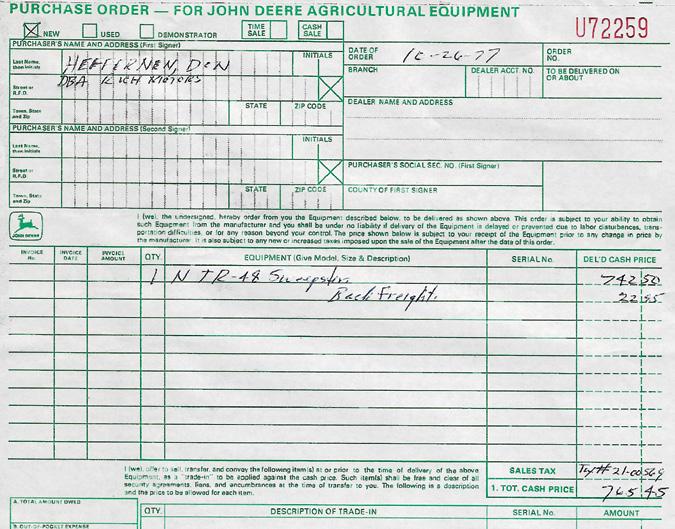 PURCHASE ORDER — FOR JOHN DEERE AGRICULTURAL EQUIPMENT
NEW USED DEMONSTRATOR TIME SALE CASH SALE U72259
PURCHASER'S NAME AND ADDRESS (First Signer)
Last Name, then Initials HEFFERNEN, DON INITIALS
Street or R.F.D. DBA RICH MOTORS
Town, State and Zip STATE ZIP CODE
DATE OF ORDER 10-26-77 ORDER NO.
BRANCH DEALER ACCT. NO. TO BE DELIVERED ON OR ABOUT
DEALER NAME AND ADDRESS
PURCHASER'S NAME AND ADDRESS (Second Signer)
Last Name, then Initials INITIALS
Street or R.F.D.
Town, State and Zip STATE ZIP CODE
PURCHASER'S SOCIAL SEC. NO. (First Signer)
COUNTY OF FIRST SIGNER
JOHN DEERE
I (we), the undersigned, hereby order from you the Equipment described below, to be delivered as shown above. This order is subject to your ability to obtain
such Equipment from the manufacturer and you shall be under no liability if delivery of the Equipment is delayed or prevented due to labor disturbances, trans-
portation difficulties, or for any reason beyond your control. The price shown below is subject to your receipt of the Equipment prior to any change in price by
the manufacturer. It is also subject to any new or increased taxes imposed upon the sale of the Equipment after the date of this order.
INVOICE No. INVOICE DATE INVOICE AMOUNT QTY. EQUIPMENT (Give Model, Size & Description) SERIAL No. DEL'D CASH PRICE
1 N TR-48 742 50
Back Freight. 22 95
I (we), offer to sell, transfer, and convey the following item(s) at or prior to the time of delivery of the above
Equipment, as a "trade-in" to be applied against the cash price. Such item(s) shall be free and clear of all
security agreements, liens, and encumbrances at the time of transfer to you. The following is a description
and the price to be allowed for each item.
SALES TAX Tax# 21-00569
1. TOT. CASH PRICE 765.45
A. TOTAL AMOUNT OWED
QTY. DESCRIPTION OF TRADE-IN SERIAL No. AMOUNT
B. OUT-OF-POCKET EXPENSE